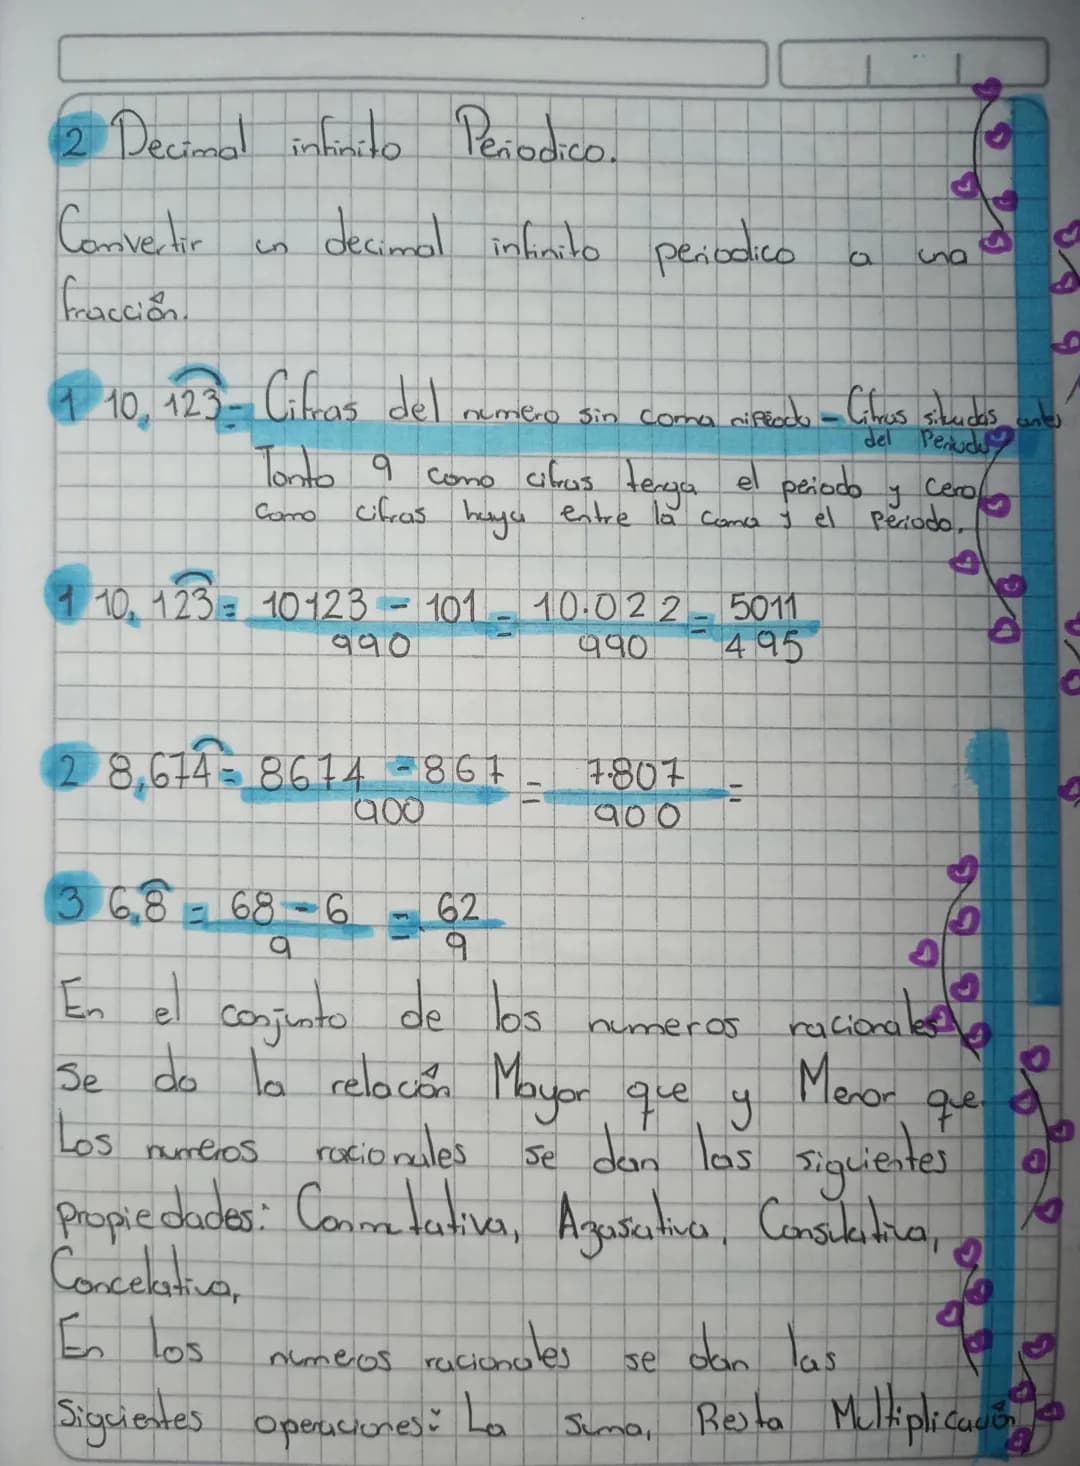 2 Decimal infinito Periodico.
Convertir un decimal infinito periodico a una
fracción.
1 10,123 = Cifras del numero sin coma ni Periodo - Cifras situdas antes
del Periodo
Tanto 9 como cifras tenga el periodo y cero
como cifras haya entre la coma y el Periodo.
1 10,123 = 10123 - 101 = 10.022 = 5011
990 990 495
2 8,674 = 8674 - 867 = 7.807 =
900 900
3 6,8 = 68 - 6 = 62
9 9
En el conjunto de los numeros racionales
Se da la relación Mayor que y Menor que.
Los numeros racionales se dan las siguientes
propiedades: Conmutativa, Azasiativa,
Concelativa,
En los numeros racionales se dan las
Siguientes operaciones: La Suma, Resta Multiplicación